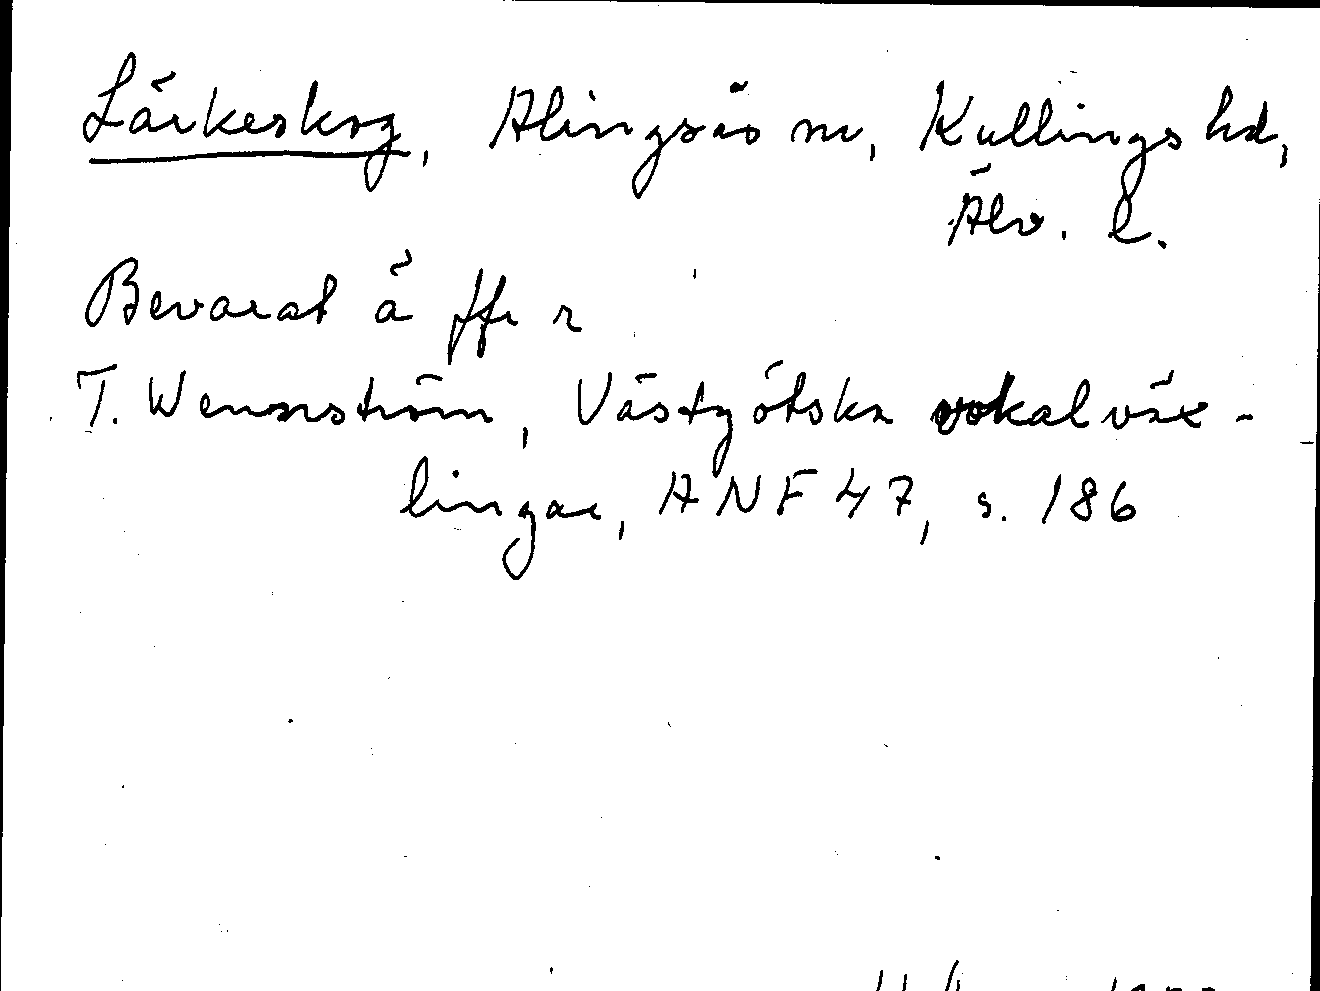 Lärkeskog, Alingsås m, Kullings hd,
Älv. l.
Bevarat ä ffr r
T. Wennström, Västgötska vokalväx-
lingar, ANF 47, s. 186